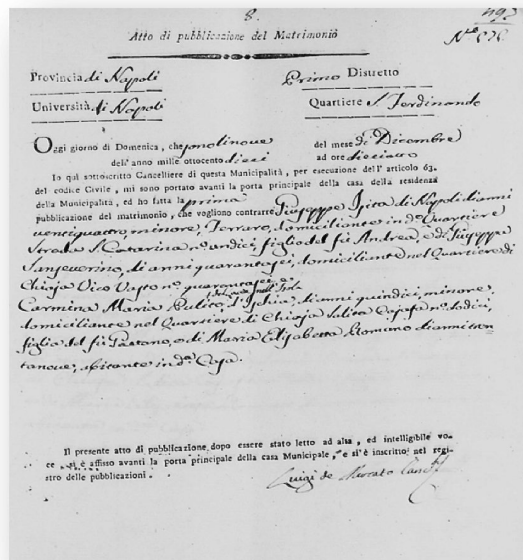 8.
Atto di pubblicazione del Matrimonio
Provincia di Napoli
Primo Distretto
Università di Napoli
Quartiere S. Ferdinando
Oggi giorno di Domenica, che sono li nove del mese di Decembre
dell' anno mille ottocento dieci ad ore dieciotto
Io qui sottoscritto Cancelliere di questa Municipalità, per esecuzione dell' articolo 63.
del codice Civile, mi sono portato avanti la porta principale della casa della residenza
della Municipalità, ed ho fatta la prima
pubblicazione del matrimonio, che vogliono contrarre Giuseppe di Napoli di anni
ventiquattro, minore, Ferraro, domiciliante in d.º Quartiere
Strada S. Catarina n.º undici, figlio del fù Andrea, e di Giuseppa
Sanseverino, di anni quarantasei, domiciliante nel Quartiere di
Chiaja Vico Vasto n.º quarantasei e
Carmina Maria d'Ischia, di anni quindici, minore,
domiciliante nel Quartiere di Chiaja Salita n.º dodici,
figlia del fù Gaetano, e di Maria Elisabetta Romano di anni tren=
tanove, abitante in d.ª Casa.
Il presente atto di pubblicazione dopo essere stato letto ad alta, ed intelligibile vo-
ce, si è affisso avanti la porta principale della casa Municipale, e si è inscritto nel regi-
stro delle pubblicazioni.
Luigi de Marcato Canc.